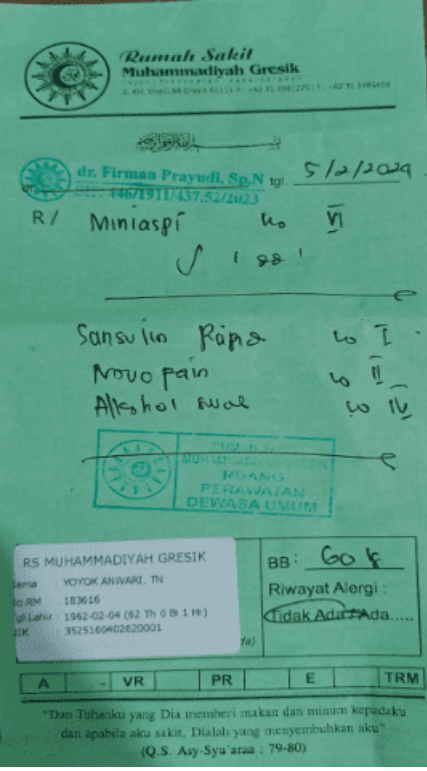 Rumah Sakit
Muhammadiyah Gresik
dr. Firman Prayudi, Sp.N tgl. 5/2/2024
446/1911/437.52/2023
R/ Miniaspi no VI
∫ 1 dd 1
Sansulin Rapid no I
Novo pain no II
Alkohol swab no IV
MUHAMMADIYAH GRESIK
RUANG
PERAWATAN
DEWASA UMUM
RS MUHAMMADIYAH GRESIK
Nama YOYOK ANWARI, TN
No.RM : 183616
Tgl.Lahir : 1962-02-04 (62 Th 0 Bl 1 Hr)
NIK 3525160402620001
BB : 60 k
Riwayat Alergi :
Tidak Ada / Ada.....
A - VR PR E TRM
"Dan Tuhanku yang Dia memberi makan dan minum kepadaku
dan apabila aku sakit, Dialah yang menyembuhkan aku"
(Q.S. Asy-Syu'araa : 79-80)